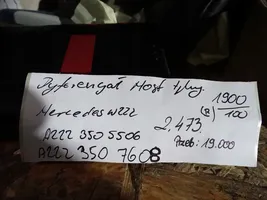 Dyferencjał Most tylny 1900/100
Mercedes W222 (8)
A222 350 5506 2,473
A222 350 7608 Przeb: 19.000